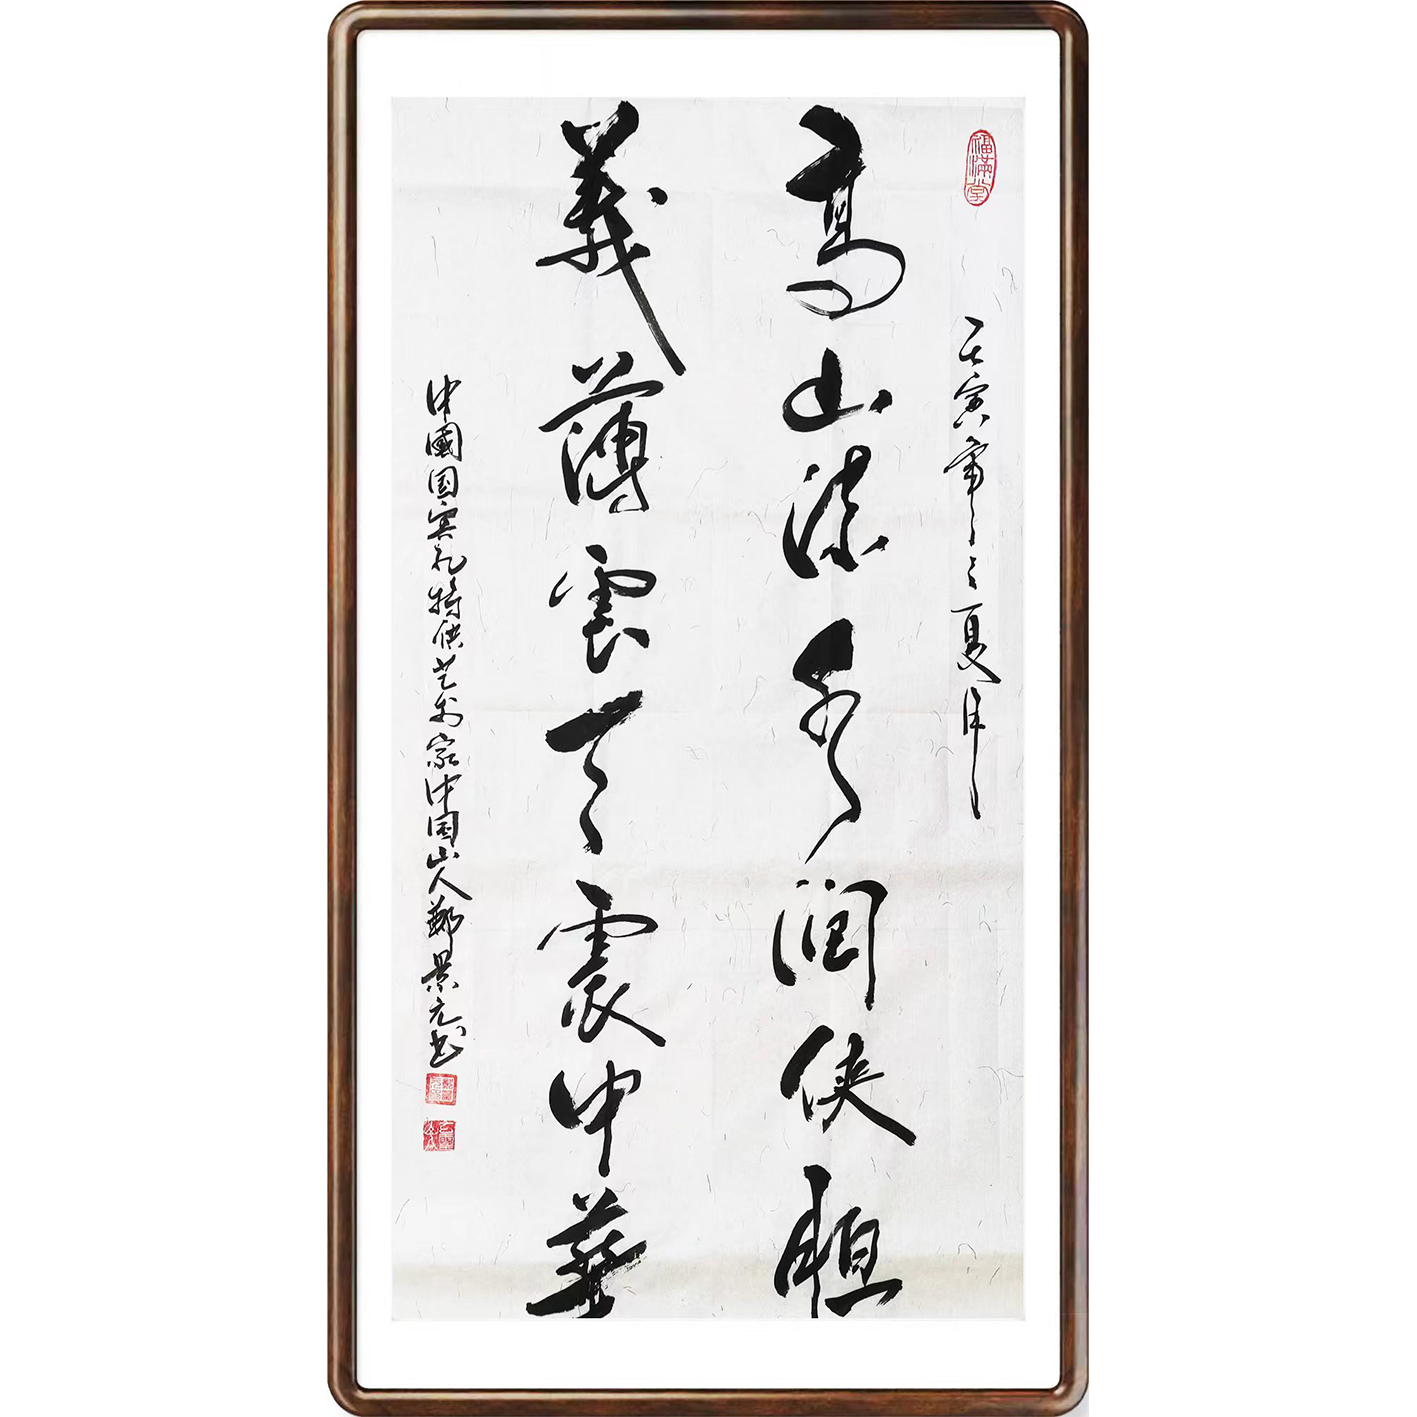 福滿堂
壬寅年之夏月
高山流水润侠胆
義薄雲天震中華
中國国宾礼特供艺术家中国山人鄭景元书